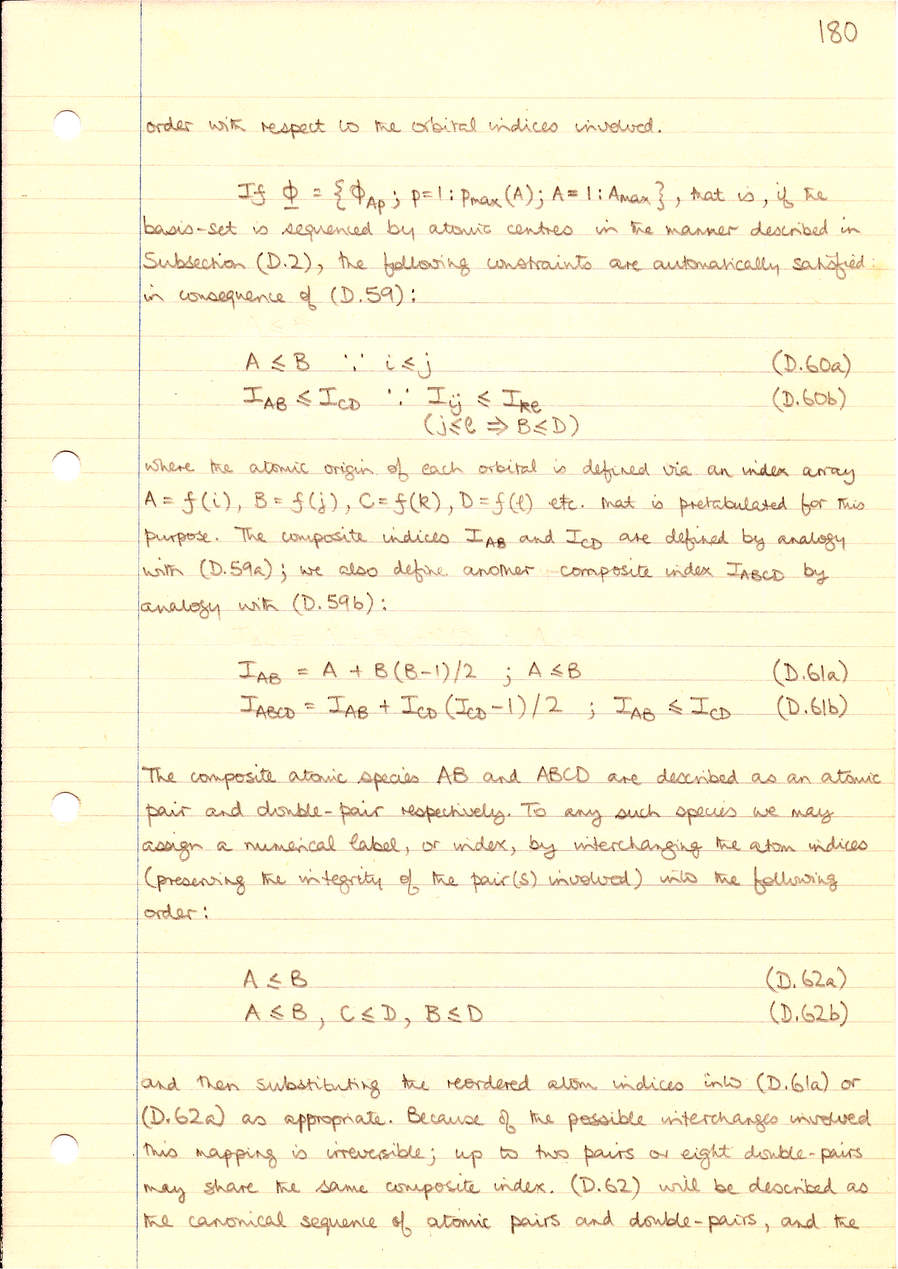 180
order with respect to the orbital indices involved.
If Φ = {ΦAp ; p=1:pmax(A); A=1:Amax}, that is, if the
basis-set is sequenced by atomic centres in the manner described in
Subsection (D.2), the following constraints are automatically satisfied
in consequence of (D.59):
A ≤ B ∵ i ≤ j (D.60a)
IAB ≤ ICD ∵ Iij ≤ Ikℓ (D.60b)
(j≤ℓ ⇒ B≤D)
where the atomic origin of each orbital is defined via an index array
A = f(i), B = f(j), C = f(k), D = f(ℓ) etc. that is pretabulated for this
purpose. The composite indices IAB and ICD are defined by analogy
with (D.59a); we also define another composite index IABCD by
analogy with (D.59b):
IAB = A + B(B-1)/2 ; A ≤ B (D.61a)
IABCD = IAB + ICD(ICD-1)/2 ; IAB ≤ ICD (D.61b)
The composite atomic species AB and ABCD are described as an atomic
pair and double-pair respectively. To any such species we may
assign a numerical label, or index, by interchanging the atom indices
(preserving the integrity of the pair(s) involved) into the following
order:
A ≤ B (D.62a)
A ≤ B, C ≤ D, B ≤ D (D.62b)
and then substituting the reordered atom indices into (D.61a) or
(D.62a) as appropriate. Because of the possible interchanges involved
this mapping is irreversible; up to two pairs or eight double-pairs
may share the same composite index. (D.62) will be described as
the canonical sequence of atomic pairs and double-pairs, and the